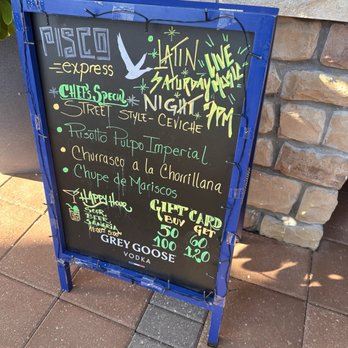 PISCO
express
LATIN
SATURDAY
NIGHT
LIVE
MUSIC
7PM
CHEF'S SPECIAL
STREET STYLE - CEVICHE
Risotto Pulpo Imperial
Churrasco a la Chorrillana
Chupe de Mariscos
HAPPY HOUR
SOUR
BEER
SANGRIA
GIFT CARD
BUY GET
50 60
100 120
GREY GOOSE
VODKA